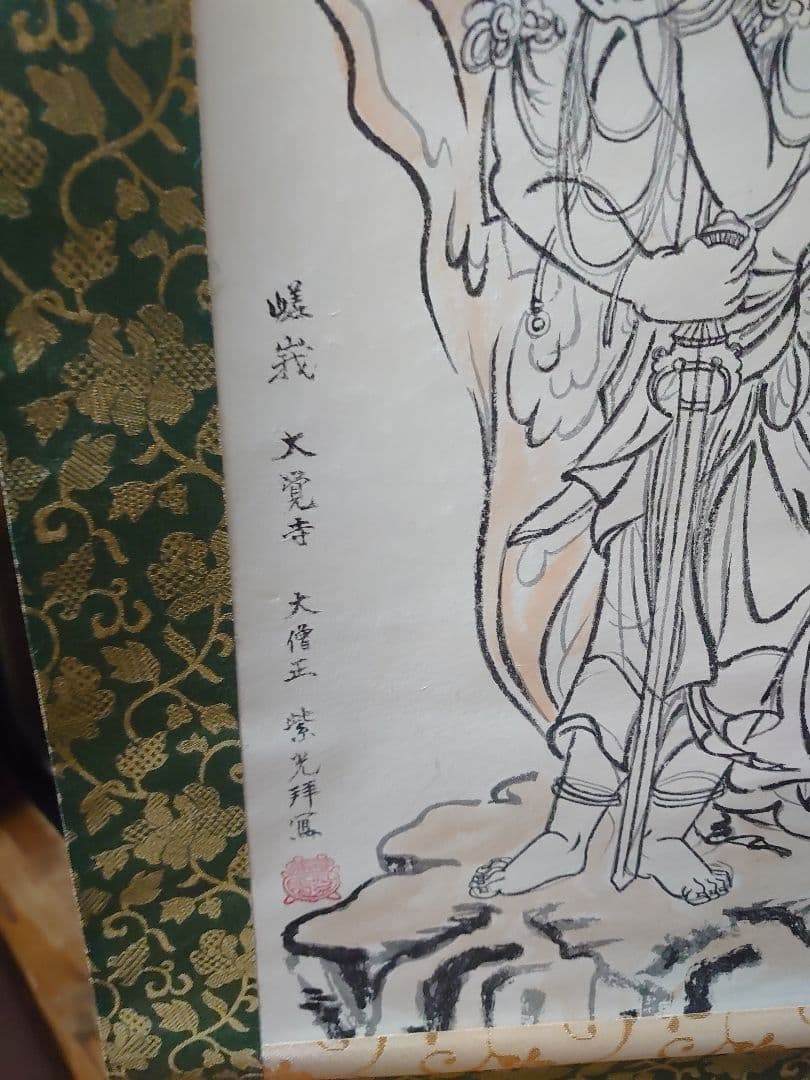 嵯峩 大覺寺 大僧正 紫光拜寫